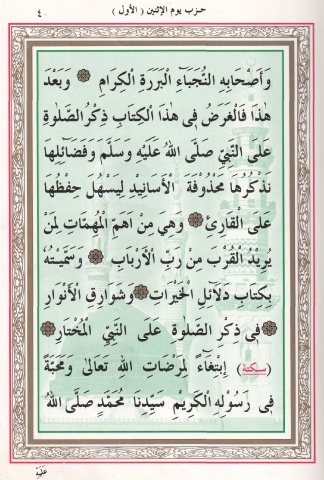 حزب يوم الإثنين ( الأول )
٤
وَأَصْحَابِهِ النُّجَبَاءِ الْبَرَرَةِ الْكِرَامِ ۞ وَبَعْدَ
هٰذَا فَالْغَرَضُ فِى هٰذَا الْكِتَابِ ذِكْرُ الصَّلٰوةِ
عَلَى النَّبِىِّ صَلَّى اللهُ عَلَيْهِ وَسَلَّمَ وَفَضَائِلِهَا
نَذْكُرُهَا مَحْذُوفَةَ الْأَسَانِيدِ لِيَسْهُلَ حِفْظُهَا
عَلَى الْقَارِئِ ۞ وَهِىَ مِنْ اَهَمِّ الْمُهِمَّاتِ لِمَنْ
يُرِيدُ الْقُرْبَ مِنْ رَبِّ الْأَرْبَابِ ۞ وَسَمَّيْتُهُ
بِكِتَابِ دَلَائِلِ الْخَيْرَاتِ ۞ وَشَوَارِقِ الْأَنْوَارِ
۞ فِى ذِكْرِ الصَّلٰوةِ عَلَى النَّبِىِّ الْمُخْتَارِ ۞
(سكتة) اِبْتِغَاءً لِمَرْضَاتِ اللهِ تَعَالىٰ وَمَحَبَّةً
فِى رَسُولِهِ الْكَرِيمِ سَيِّدِنَا مُحَمَّدٍ صَلَّى اللهُ
عَلَيْهِ